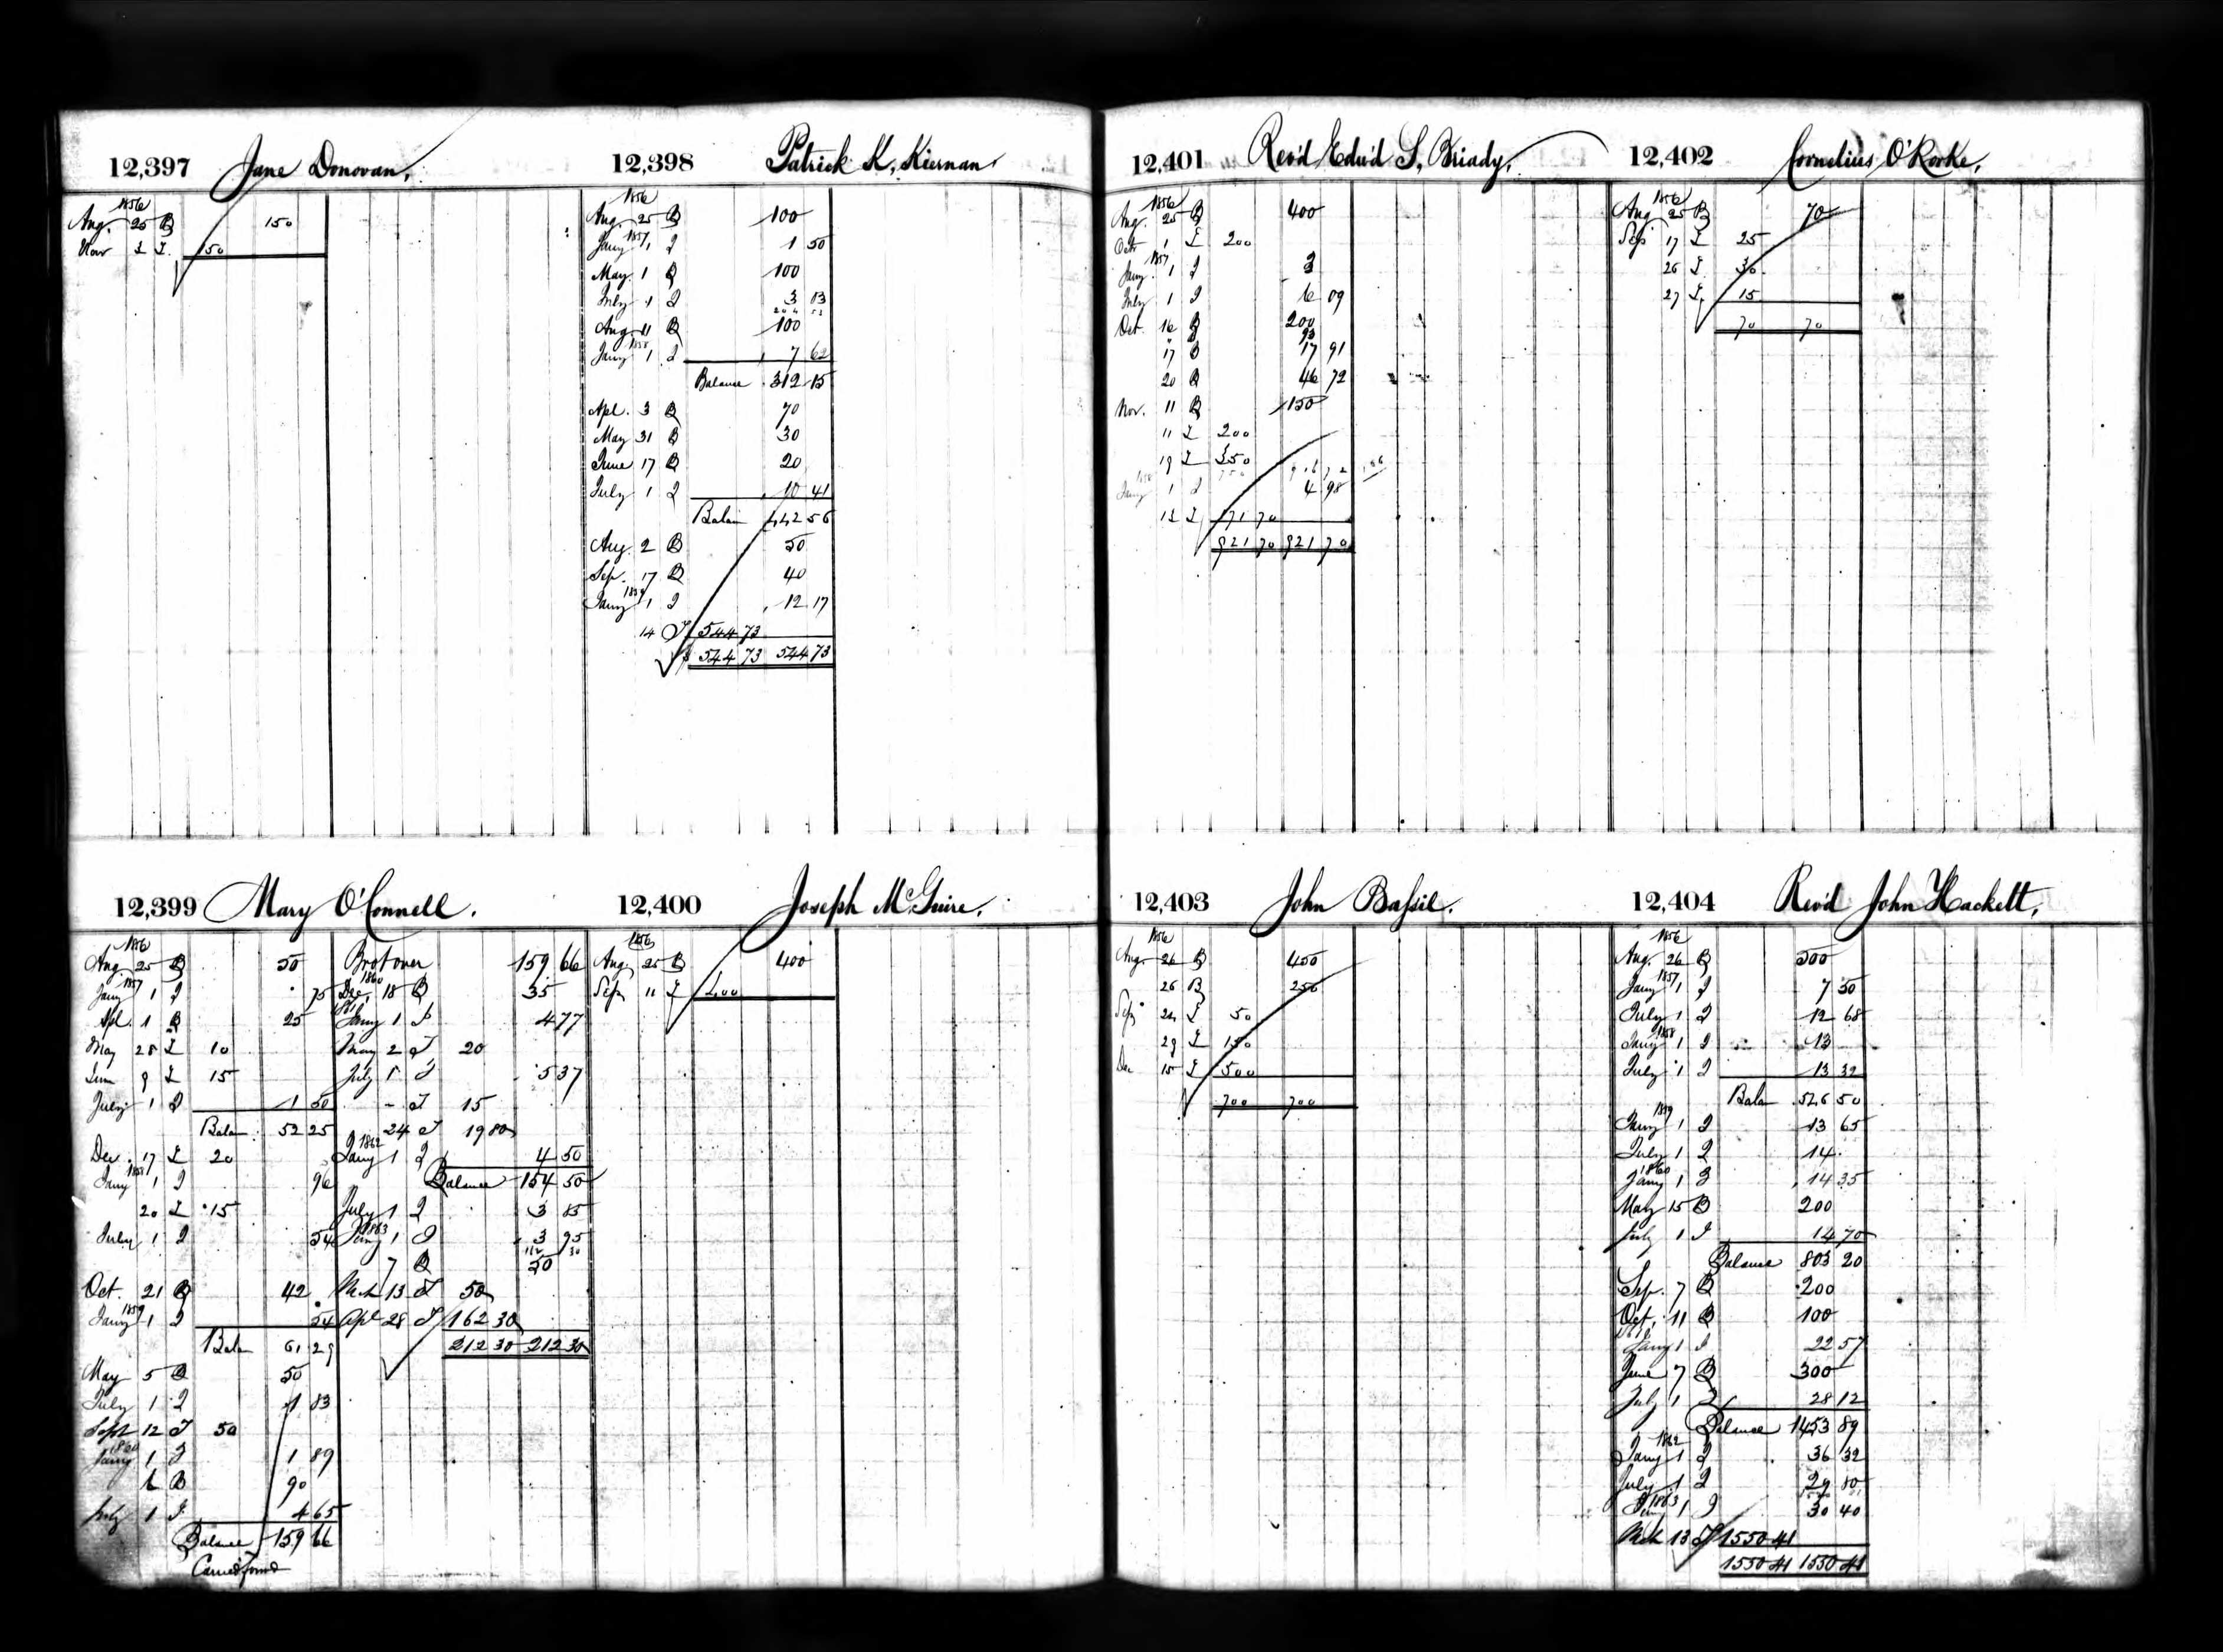 12,397 Jane Donovan.
1856
Aug. 25 B 150
Nov 1 I. 150
12,398 Patrick K. Kiernan
1856
Aug. 25 B 100
Jany 1857 1 I 1 50
May 1 B 100
July 1 I 3 03
204 53
Aug. 11 B 100
Jany 1858 1 I 7 62
Balance 312 15
Apl. 3 B 70
May 31 B 30
June 17 B 20
July 1 I 10 41
Balan 442 56
Aug. 2 B 50
Sep. 17 B 40
Jany 1859 1 I 12 17
14 I 544 73
$ 544 73 544 73
12,399 Mary O'Connell.
1856
Aug. 25 B 50
Jany 1857 1 I 75
Apl. 1 B 25
May 28 I 10
June 9 I 15
July 1 I 1 50
Balan. 52 25
Dec. 17 I 20
Jany 1858 1 I 96
20 I 15
July 1 I 54
Oct. 21 B 42
Jany 1859 1 I 54
Balan 61 29
May 5 B 50
July 1 I 1 83
Sept 12 I 50
1860
Jany 1 I 1 89
6 B 90
July 1 I 4 65
Balance 159 66
Carried forwd
Brot over 159 66
1860
Dec. 18 B 35
1861
Jany 1 I 4 77
May 2 I 20
July 1 I 5 37
- I 15
24 I 19 80
1862
Jany 1 I 4 50
Balance 154 50
July 1 I 3 85
1863
Jany 1 I 3 95
162 30
7 B 50
Mch 13 I 50
Apl 28 I 162 30
212 30 212 30
12,400 Joseph McGuire.
1856
Aug. 25 B 400
Sep. 11 I 400
12,401 Rev'd Edw'd S. Briady,
1856
Aug. 25 B 400
Octr 1 I 200
1857
Jany. 1 I 3
July 1 I 6 09
Oct. 16 B 200
17 B 17 91
20 B 46 72
Nov. 11 B 150
11 I 200
19 I 350
1858
Jany 1 I 4 98
12 I 171 70
921 70 921 70
12,402 Cornelius O'Rorke,
1856
Aug. 25 B 70
Sep 17 I 25
26 I 30
27 I 15
70 70
12,403 John Bassil.
1856
Aug. 26 B 450
26 B 250
Sep. 24 I 50
29 I 150
Dec 15 I 500
700 700
12,404 Rev'd John Hackett,
1856
Aug. 26 B 500
Jany 1857 1 I 7 50
July 1 I 12 68
Jany 1858 1 I 13
July 1 I 13 32
Balan 546 50
1859
Jany 1 I 13 65
July 1 I 14
1860
Jany 1 I 14 35
May 15 B 200
July 1 I 14 70
Balance 803 20
Sep. 7 B 200
Oct. 11 B 100
1861
Jany 1 I 22 57
June 7 B 300
July 1 I 28 12
Balance 1453 89
1862
Jany 1 I 36 32
July 1 I 29 80
1863
Jany 1 I 30 40
Mch 13 I 1550 41
1550 41 1550 41